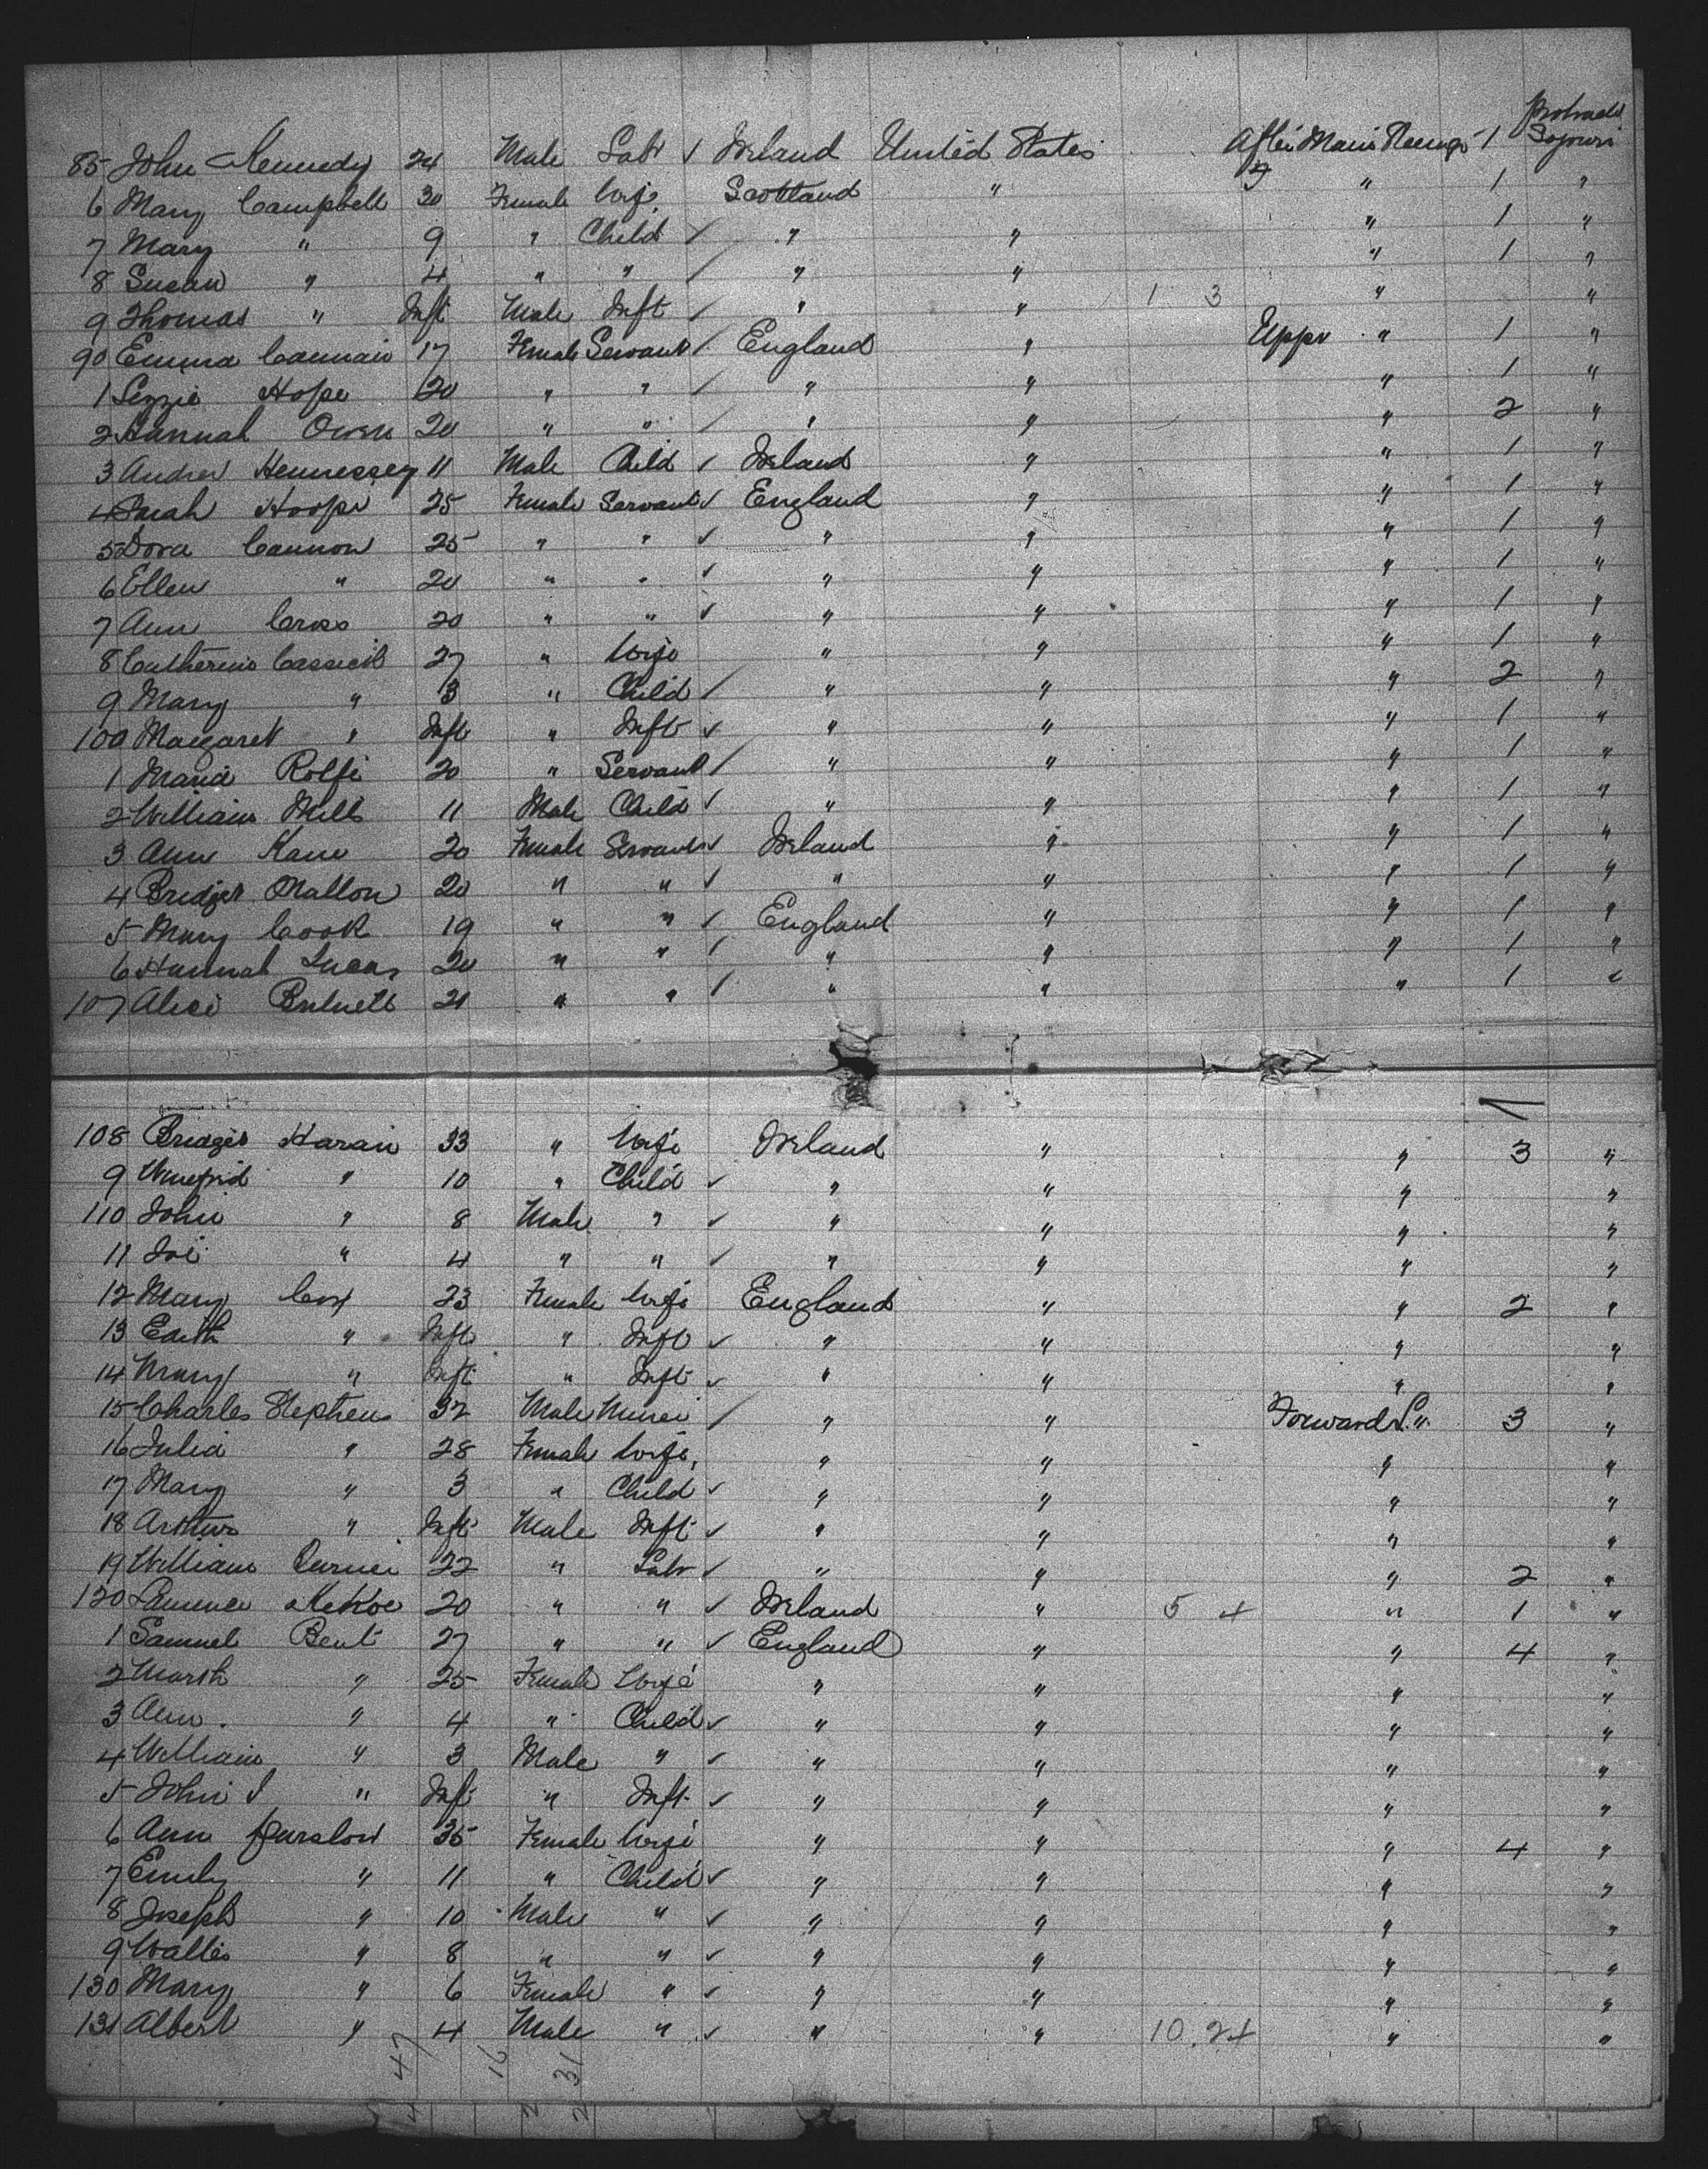 Protracted
85 John Kennedy 24 Male Labr ✓ Ireland United States After Main 1 Sojourn
6 Mary Campbell 30 Female Wife Scotland " " 1 "
7 Mary " 9 " Child ✓ " " " 1 "
8 Susan " 4 " " ✓ " " " 1 "
9 Thomas " Inft Male Inft ✓ " " 1 3 " "
90 Emma 17 Female Servant ✓ England " Uppr " 1 "
1 Lizzie Hope 20 " " ✓ " " " 1 "
2 Hannah Owen 20 " " ✓ " " " 2 "
3 Andrew Hennessey 11 Male Child ✓ Ireland " " 1 "
4 Sarah Hoope 25 Female Servant ✓ England " " 1 "
5 Dora Cannon 25 " " ✓ " " " 1 "
6 Ellen " 20 " " ✓ " " " 1 "
7 Ann Cross 20 " " ✓ " " " 1 "
8 Catherine 27 " Wife " " " 1 "
9 Mary " 3 " Child ✓ " " " 2 "
100 Margaret " Inft " Inft ✓ " " " 1 "
1 Maria Rolfe 20 " Servant ✓ " " " 1 "
2 William Mills 11 Male Child ✓ " " " 1 "
3 Ann Kane 20 Female Servant ✓ Ireland " " 1 "
4 Bridget Mallon 20 " " ✓ " " " 1 "
5 Mary Cook 19 " " ✓ England " " 1 "
6 Hannah Lucas 20 " " ✓ " " " 1 "
107 Alice 21 " " ✓ " " " 1 "
108 Bridget Haran 33 " Wife Ireland " " 3 "
9 Winefrid " 10 " Child ✓ " " " "
110 John " 8 Male " ✓ " " " "
11 Joe " 4 " " ✓ " " " "
12 Mary Cox 23 Female Wife England " " 2 "
13 Edith " Inft " Inft ✓ " " " "
14 Mary " Inft " Inft ✓ " " " "
15 Charles Stephens 32 Male Miner ✓ " " Forward 3 "
16 Julia " 28 Female Wife " " " "
17 Mary " 3 " Child ✓ " " " "
18 Arthur " Inft Male Inft ✓ " " " "
19 William 22 " Labr ✓ " " " 2 "
120 Laurence 20 " " ✓ Ireland " 5 4 " 1 "
1 Samuel Bent 27 " " ✓ England " " 4 "
2 25 Female Wife " " " "
3 Ann " 4 " Child ✓ " " " "
4 William " 3 Male " ✓ " " " "
5 John " Inft " Inft ✓ " " " "
6 Ann 35 Female Wife " " " 4 "
7 Emily " 11 " Child ✓ " " " "
8 Joseph " 10 Male " ✓ " " " "
9 " 8 " " ✓ " " " "
130 Mary " 6 Female " ✓ " " " "
131 Albert " 4 Male " ✓ " " 10 24 " "
47 16 31